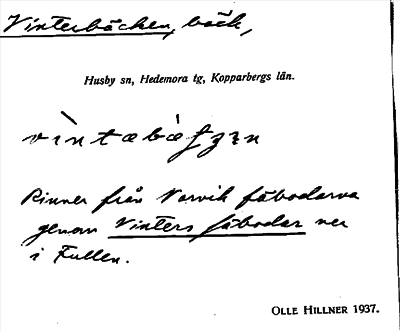 Vinterbäcken, bäck,
Husby sn, Hedemora tg, Kopparbergs län.
Rinner från Norvik fäbodarna
genom Vinters fäbodar ner
i Fullen.
OLLE HILLNER 1937.